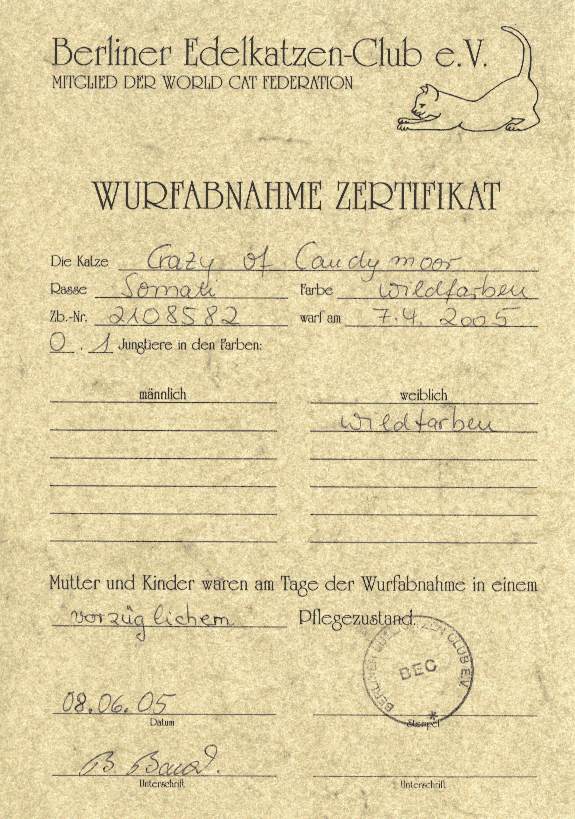 Berliner Edelkatzen-Club e.V.
MITGLIED DER WORLD CAT FEDERATION
WURFABNAHME ZERTIFIKAT
Die Katze Crazy of Candymoor
Rasse Somali Farbe wildfarben
Zb.-Nr. 2108582 warf am 7.4.2005
0 . 1 Jungtiere in den Farben:
männlich weiblich
wildfarben
Mutter und Kinder waren am Tage der Wurfabnahme in einem
vorzüglichem Pflegezustand.
BERLINER EDELKATZEN CLUB E.V.
BEC
08.06.05
Datum Stempel
B.
Unterschrift Unterschrift